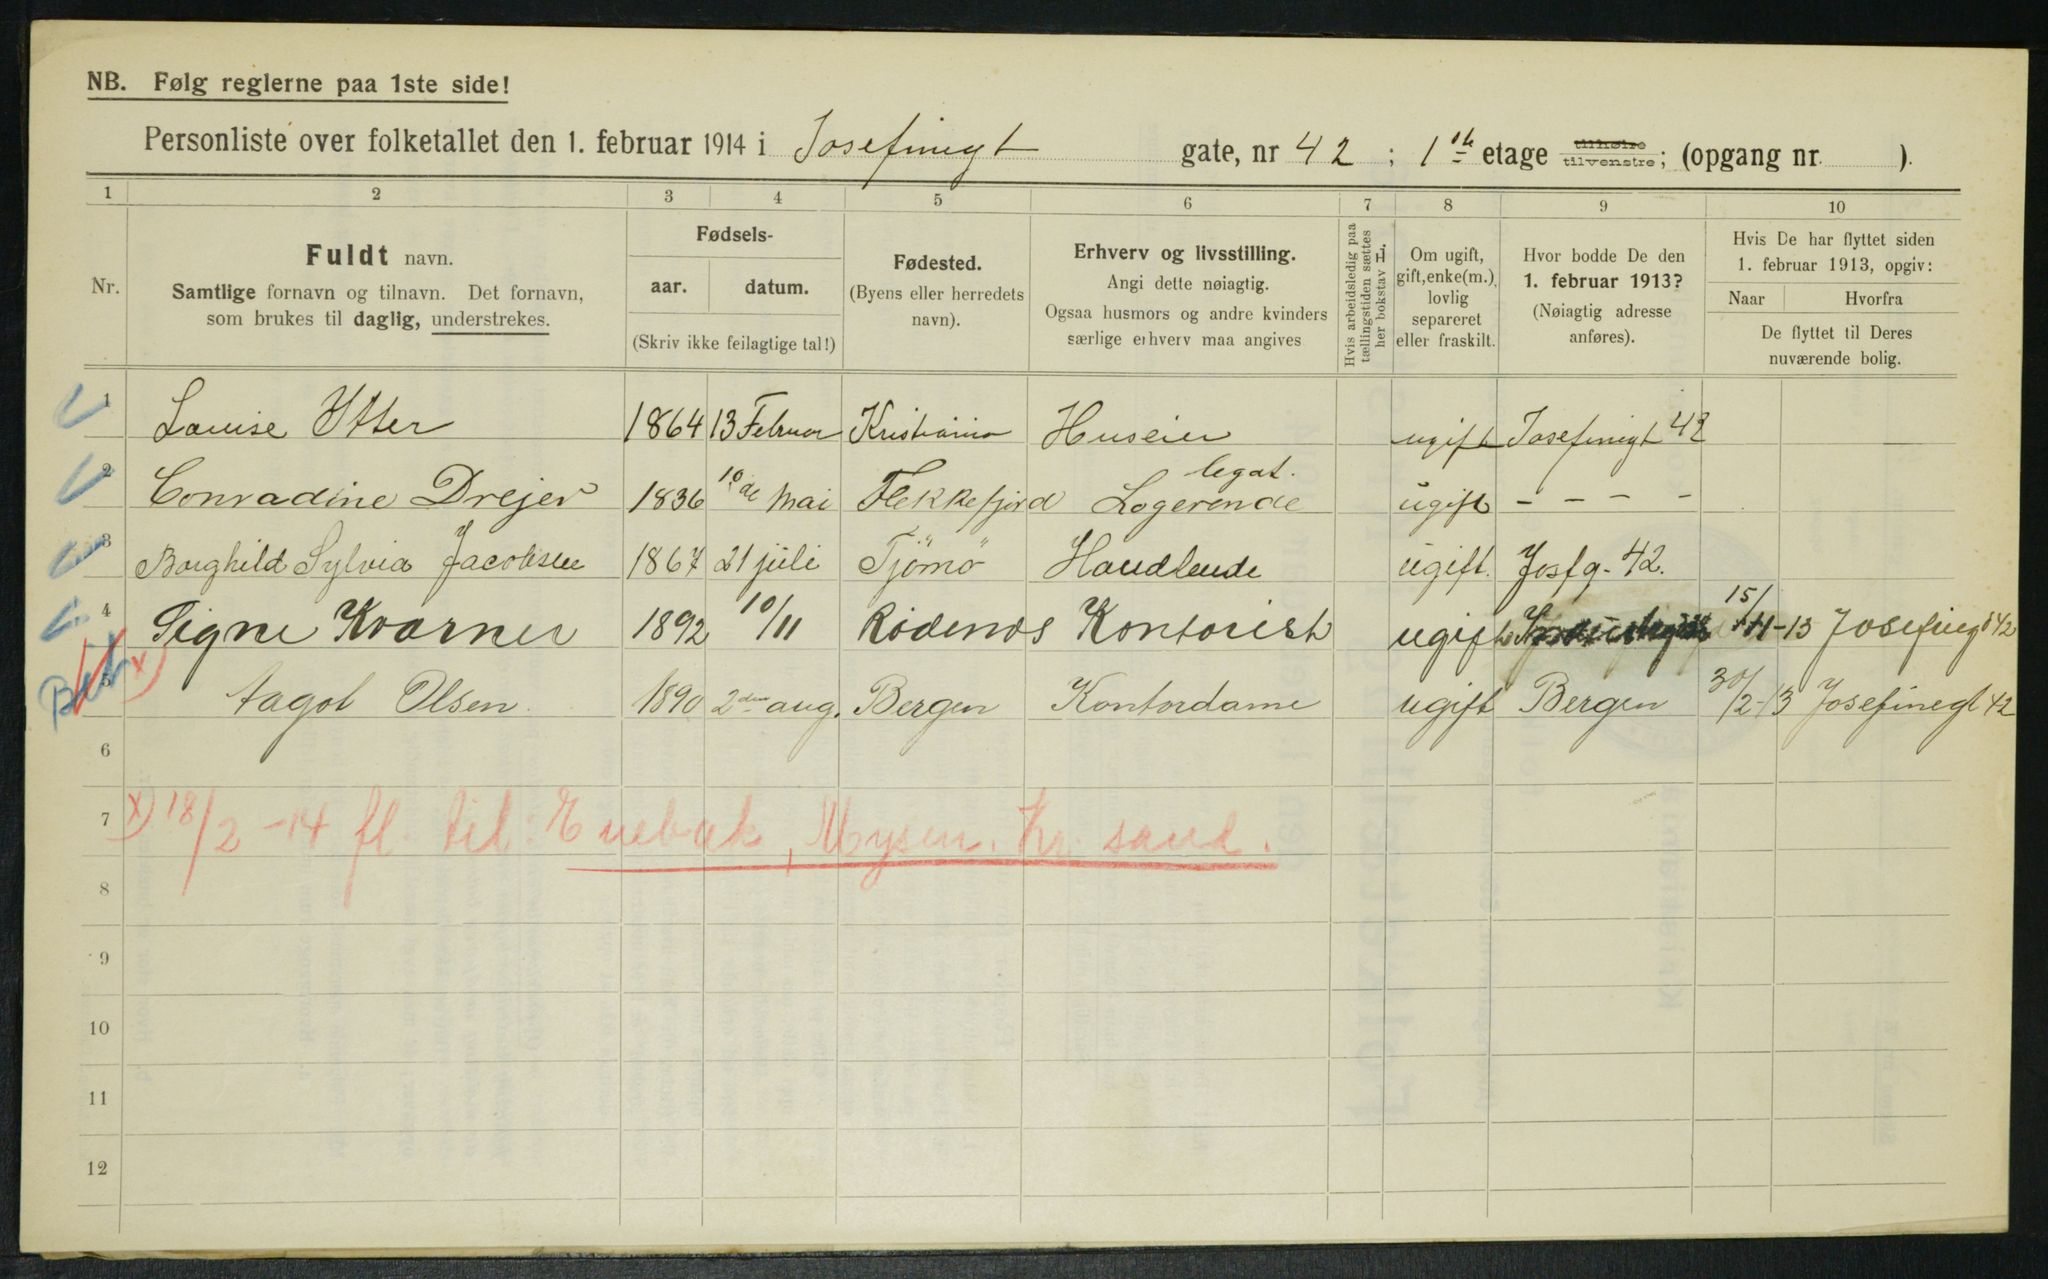 NB. Følg reglerne paa 1ste side!
Personliste over folketallet den 1. februar 1914 i Josefinegt gate, nr 42 ; 1ste etage tilhøire tilvenstre; (opgang nr. ).
1 2 3 4 5 6 7 8 9 10
Nr.
Fuldt navn.
Samtlige fornavn og tilnavn. Det fornavn,
som brukes til daglig, understrekes.
Fødsels-
aar. datum.
(Skriv ikke feilagtige tal!)
Fødested.
(Byens eller herredets
navn).
Erhverv og livsstilling.
Angi dette nøiagtig.
Ogsaa husmors og andre kvinders
særlige erhverv maa angives
Hvis arbeidsledig paa
tællingstiden sættes
her bokstav l.
Om ugift,
gift, enke(m.),
lovlig
separeret
eller fraskilt.
Hvor bodde De den
1. februar 1913?
(Nøiagtig adresse
anføres).
Hvis De har flyttet siden
1. februar 1913, opgiv:
Naar Hvorfra
De flyttet til Deres
nuværende bolig.
1 Louise Ytter 1864 13 Februar Kristiania Huseier ugift Josefinegt 42
2 Conradine Drejer 1836 10de Mai Flekkefjord legat. Logerende ugift - - - -
3 Borghild Sylvia Jacobsen 1867 21 juli Tjømø Handlende ugift. Josfg. 42.
4 Signe Kværner 1892 10/11 Rødenæs Kontorist ugift 15/11-13 Josefinegt 42
5 x) Aagot Olsen 1890 2den aug. Bergen Kontordame ugift Bergen 30/2-13 Josefinegt 42
6
7 x) 18/2-14 fl. til: Enebak, Mysen. Kr. sand.
8
9
10
11
12